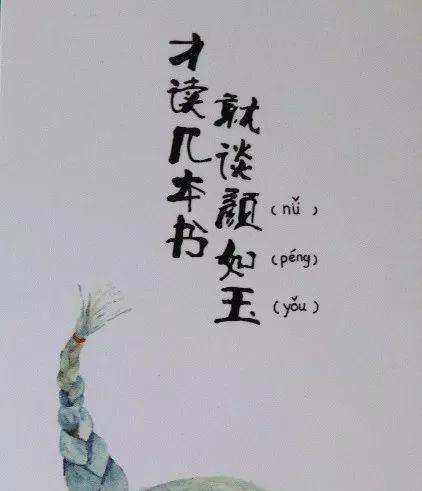 才读几本书
就谈颜如玉
(nǚ)
(péng)
(yǒu)